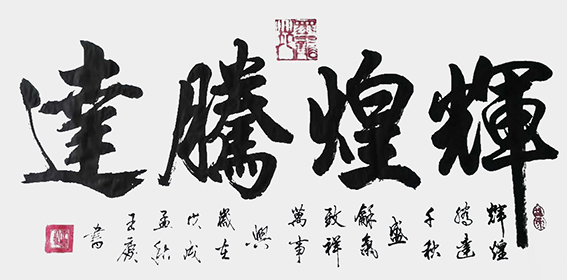 輝煌騰達
輝煌
騰達
千秋
盛
龢氣
致祥
萬事
興
歲在
戊戌
孟
王慶
書